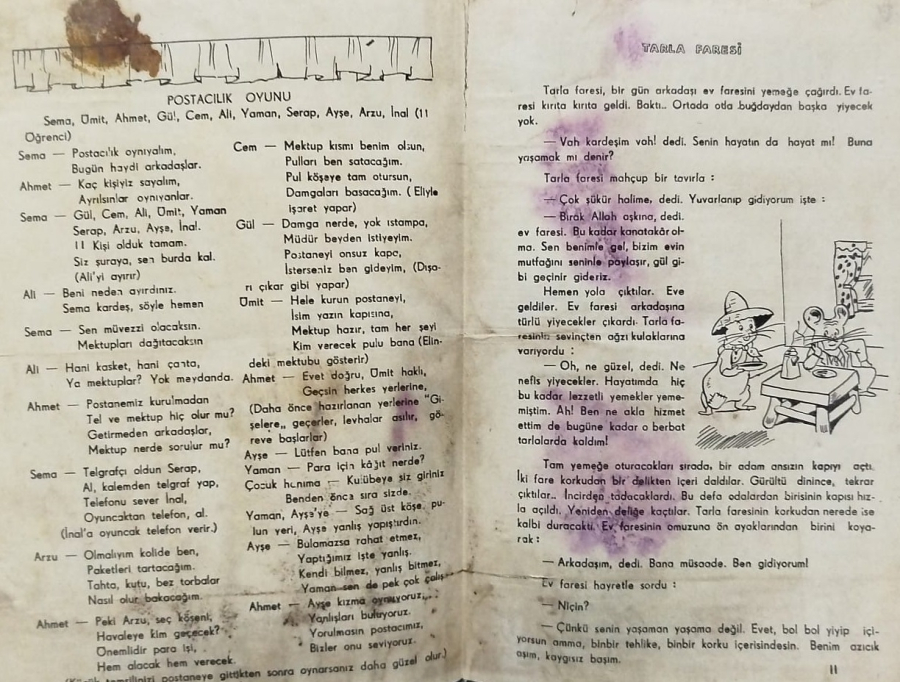 POSTACILIK OYUNU
Sema, Ümit, Ahmet, Gül, Cem, Ali, Yaman, Serap, Ayşe, Arzu, İnal (11
Öğrenci)
Sema — Postacı'ık oynıyalım,
Bugün haydi arkadaşlar.
Ahmet — Kaç kişiyiz sayalım,
Ayrılsınlar oynıyanlar.
Sema — Gül, Cem, Ali, Ümit, Yaman
Serap, Arzu, Ayşe, İnal.
11 Kişi olduk tamam.
Siz şuraya, sen burda kal.
(Ali'yi ayırır)
Ali — Beni neden ayırdınız.
Sema kardeş, söyle hemen
Sema — Sen müvezzi olacaksın.
Mektupları dağıtacaksın
Ali — Hani kasket, hani çanta,
Ya mektuplar? Yok meydanda.
Ahmet — Postanemiz kurulmadan
Tel ve mektup hiç olur mu?
Getirmeden arkadaşlar,
Mektup nerde sorulur mu?
Sema — Telgrafçı oldun Serap,
Al, kalemden telgraf yap,
Telefonu sever İnal,
Oyuncaktan telefon, al.
(İnal'a oyuncak telefon verir.)
Arzu — Olmalıyım kolide ben,
Paketleri tartacağım.
Tahta, kutu, bez torbalar
Nasıl olur bakacağım.
Ahmet — Peki Arzu, seç köşeni,
Havaleye kim geçecek?
Önemlidir para işi,
Hem alacak hem verecek.
Cem — Mektup kısmı benim olsun,
Pulları ben satacağım.
Pul köşeye tam otursun,
Damgaları basacağım. ( Eliyle
işaret yapar)
Gül — Damga nerde, yok ıstampa,
Müdür beyden istiyeyim.
Postaneyi onsuz kapa,
İsterseniz ben gideyim, (Dışa-
rı çıkar gibi yapar)
Ümit — Hele kurun postaneyi,
İsim yazın kapısına,
Mektup hazır, tam her şeyi
Kim verecek pulu bana (Elin-
deki mektubu gösterir)
Ahmet — Evet doğru, Ümit haklı,
Geçsin herkes yerlerine,
(Daha önce hazırlanan yerlerine "Gi-
şelere„ geçerler, levhalar asılır, gö-
reve başlarlar)
Ayşe — Lütfen bana pul veriniz.
Yaman — Para için kâğıt nerde?
Çocuk hanıma — Kulübeye siz giriniz
Benden önce sıra sizde.
Yaman, Ayşe'ye — Sağ üst köşe, pu-
lun yeri, Ayşe yanlış yapıştırdın.
Ayşe — Bulamazsa rahat etmez,
Yaptığımız işte yanlış.
Kendi bilmez, yanlış bitmez,
Yaman sen de pek çok
Ahmet — Ayşe kızma oynuyoruz,
Yanlışları buluyoruz.
Yorulmasın postacımız,
Bizler onu seviyoruz.
temsilinizi postaneye gittikten sonra oynarsanız daha güzel olur.)
TARLA FARESİ
Tarla faresi, bir gün arkadaşı ev faresini yemeğe çağırdı. Ev fa-
resi kırıta kırıta geldi. Baktı.. Ortada otla buğdaydan başka yiyecek
yok.
— Vah kardeşim vah! dedi. Senin hayatın da hayat mı! Buna
yaşamak mı denir?
Tarla faresi mahçup bir tavırla :
— Çok şükür halime, dedi. Yuvarlanıp gidiyorum işte :
— Bırak Allah aşkına, dedi.
ev faresi. Bu kadar kanatakâr ol-
ma. Sen benimle gel, bizim evin
mutfağını seninle paylaşır, gül gi-
bi geçinir gideriz.
Hemen yola çıktılar. Eve
geldiler. Ev faresi arkadaşına
türlü yiyecekler çıkardı. Tarla fa-
resinin sevinçten ağzı kulaklarına
varıyordu :
— Oh, ne güzel, dedi. Ne
nefis yiyecekler. Hayatımda hiç
bu kadar lezzetli yemekler yeme-
miştim. Ah! Ben ne akla hizmet
ettim de bugüne kadar o berbat
tarlalarda kaldım!
Tam yemeğe oturacakları sırada, bir adam ansızın kapıyı açtı.
İki fare korkudan bir delikten içeri daldılar. Gürültü dinince, tekrar
çıktılar.. İncirden tadacaklardı. Bu defa odalardan birisinin kapısı hız-
la açıldı. Yeniden deliğe kaçtılar. Tarla faresinin korkudan nerede ise
kalbi duracaktı. Ev faresinin omuzuna ön ayaklarından birini koya-
rak :
— Arkadaşım, dedi. Bana müsaade. Ben gidiyorum!
Ev faresi hayretle sordu :
— Niçin?
— Çünkü senin yaşaman yaşama değil. Evet, bol bol yiyip içi-
yorsun amma, binbir tehlike, binbir korku içerisindesin. Benim azıcık
aşım, kaygısız başım.
11